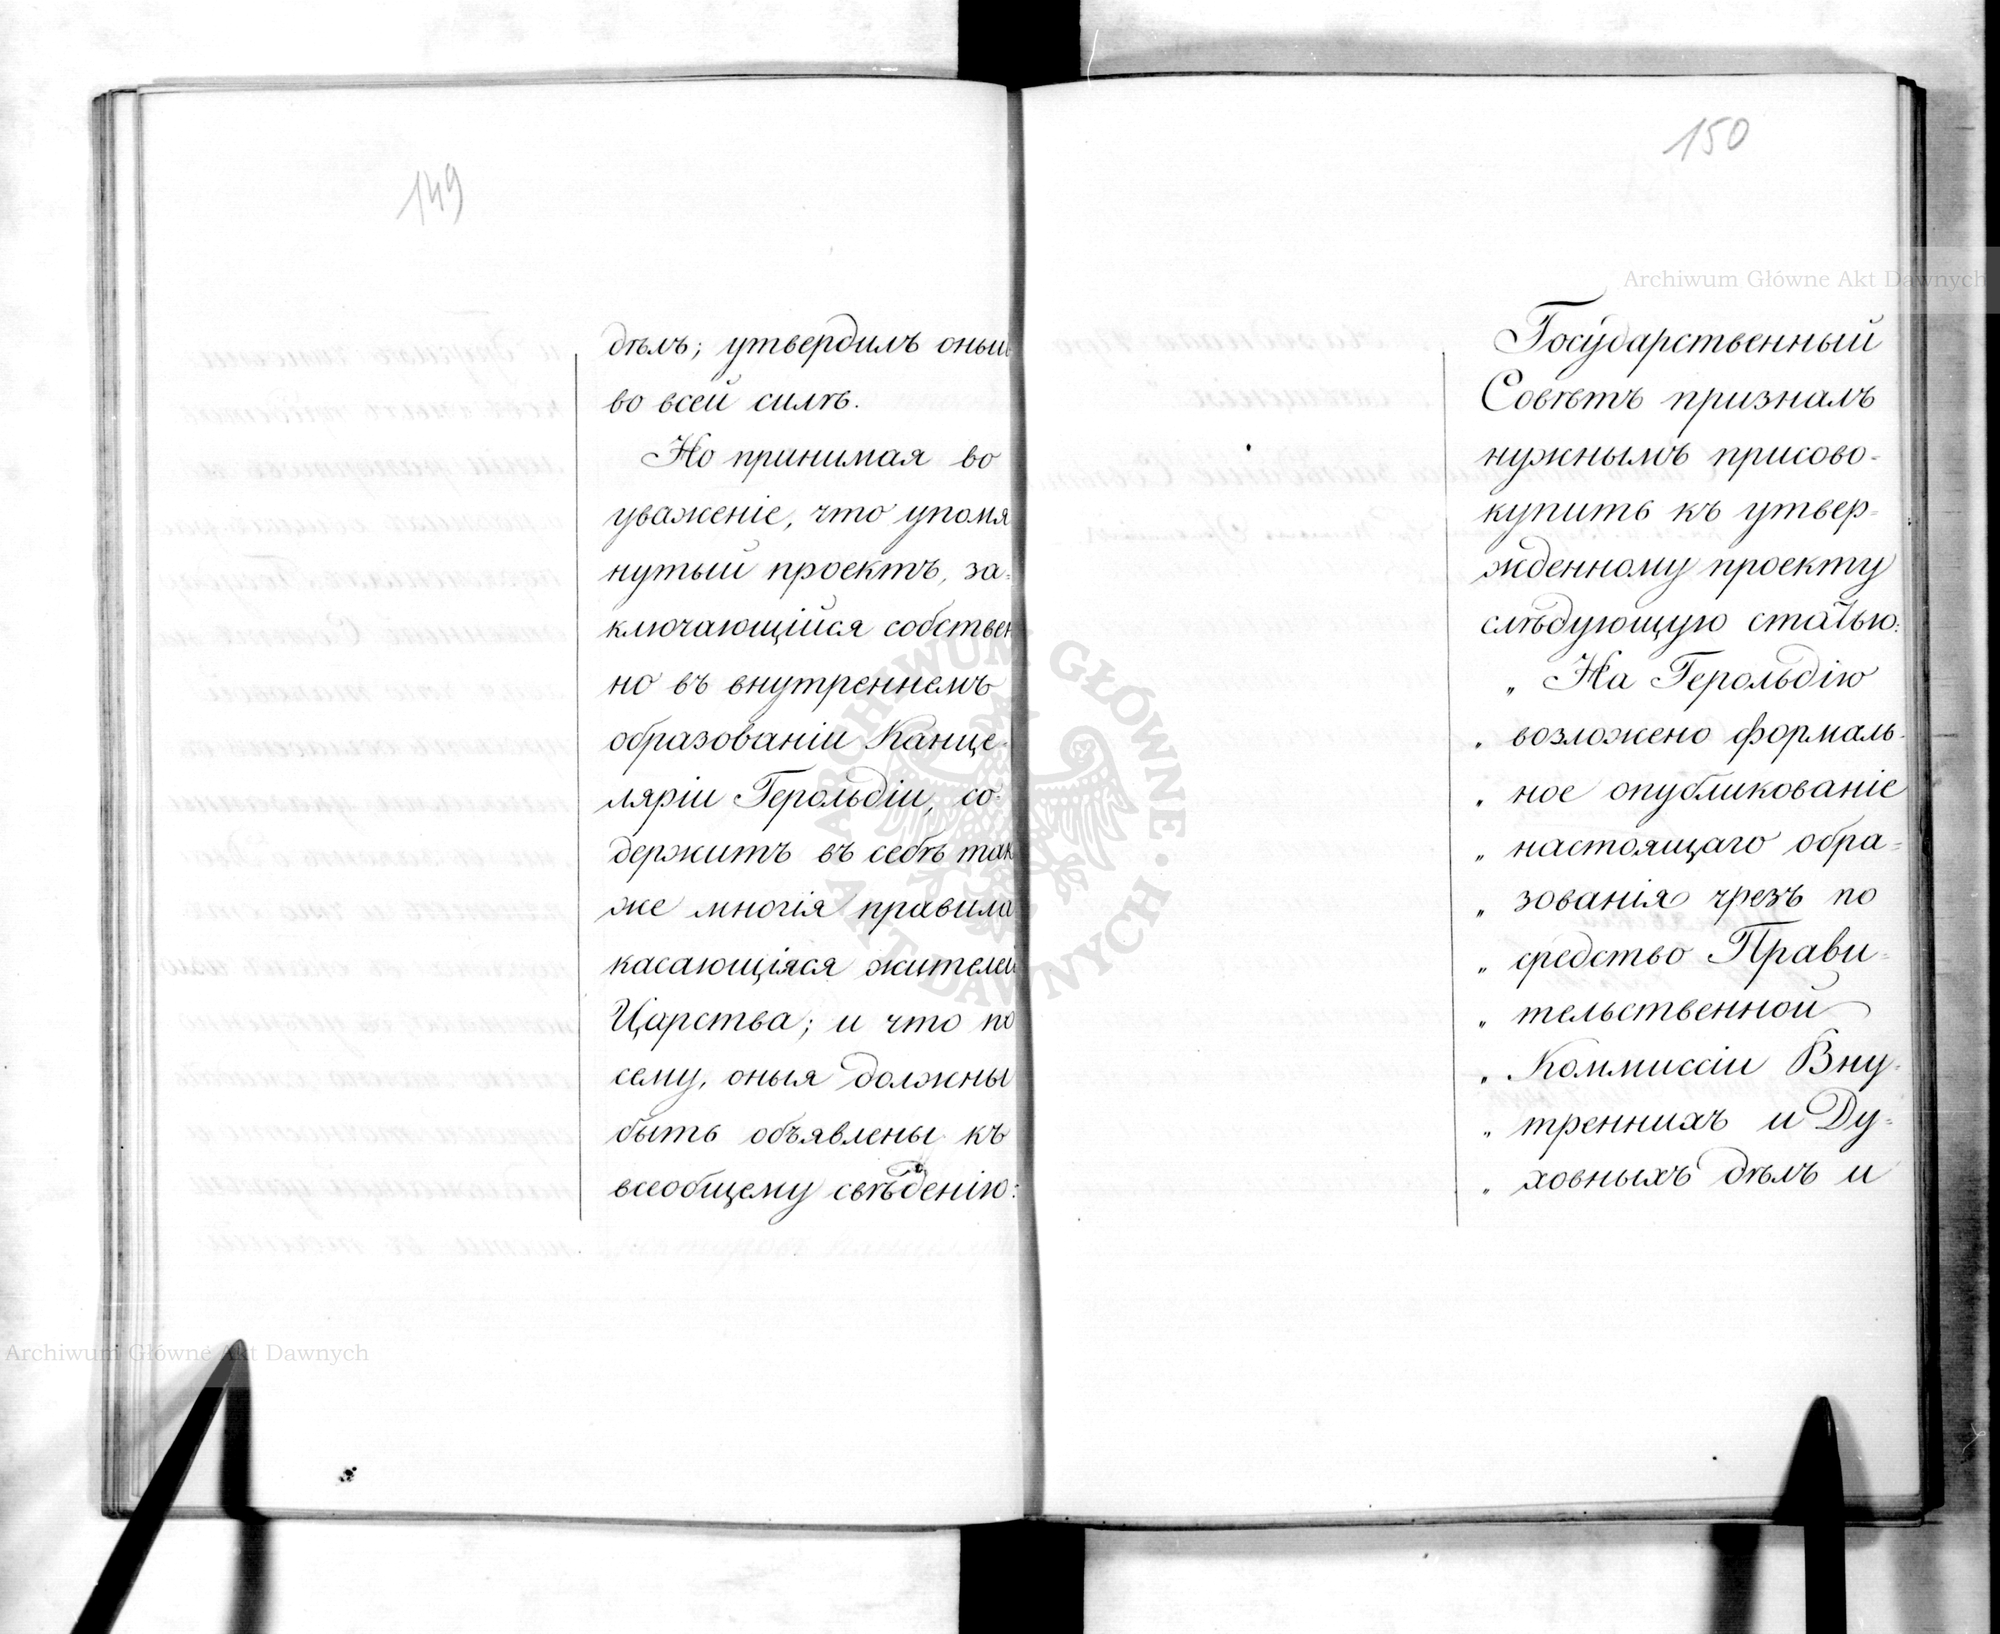 149
дѣлъ; утвердилъ оный
во всей силѣ.
Но принимая во
уваженіе, что упомя
нутый проектъ, за-
ключающійся собствен
но въ внутреннемъ
образованіи Канце-
ляріи Герольдіи, со-
держитъ въ себѣ так
же многія правила
касающіяся жителей
Царства; и что по
сему, оныя должны
быть объявлены къ
всеобщему свѣдѣнію:
150
Государственный
Совѣтъ призналъ
нужнымъ присово-
купить къ утвер-
жденному проекту
слѣдующую статью:
„ На Герольдію
„ возложено формаль-
„ ное опубликованіе
„ настоящаго обра-
„ зованія чрезъ по
„ средство Прави-
„ тельственной
„ Коммиссіи Вну-
„ треннихъ и Ду-
„ ховныхъ дѣлъ и
Archiwum Główne Akt Dawnych
Archiwum Główne Akt Dawnych
ARCHIWUM GŁÓWNE · AKT DAWNYCH ·